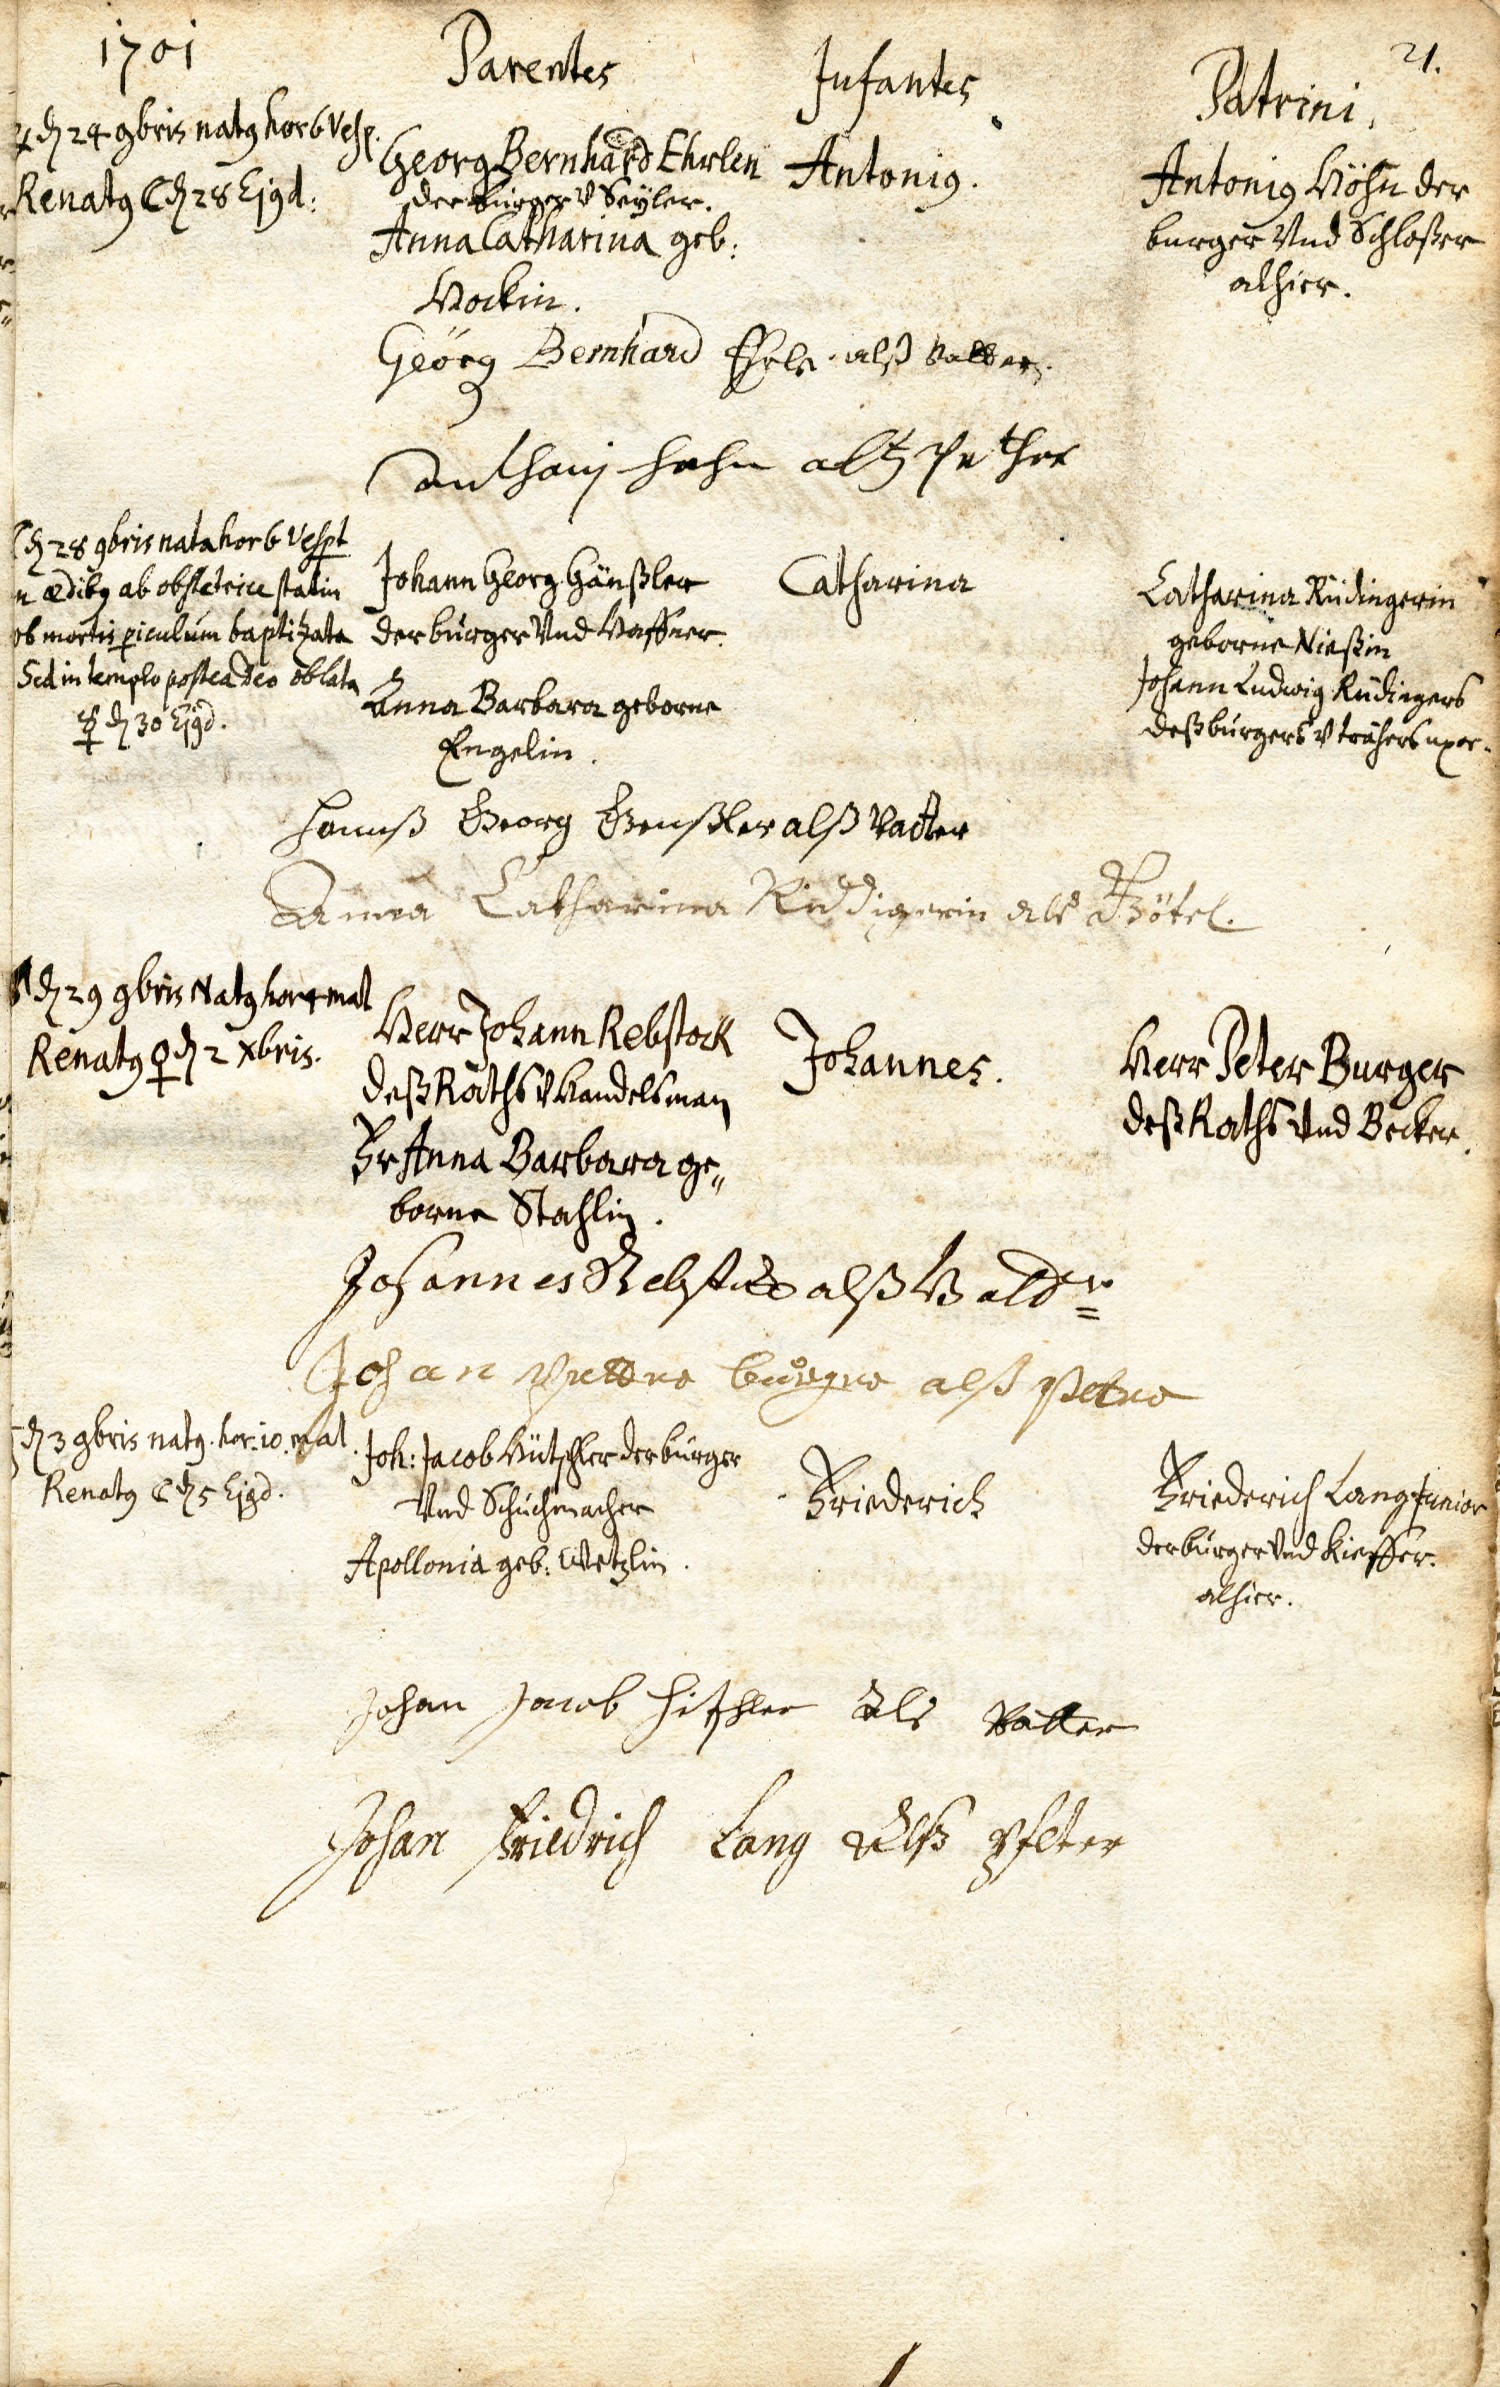 1701
Parentes
Infantes
Patrini.
21.
♃ d 24 9bris nat9 hor 6 Vesp.
Renat9 ☾ d 28 Ejgd:
Georg Bernhard Ehrlen
der burger v Seyler.
Anna Catharina geb:
Hockin.
Antoni9.
Antoni9 Höhn der
burger Vnd Schloßer
alhier.
Geörg Bernhard Ehrle alß Vatter.
Anthonj Hohn alß
☾ d 28 9bris nata hor 6 Vespt
n ædib9 ab obstetrice statim
ob mortis periculum baptizata
Sed in templo postea Deo oblata
d 30 Ejgd.
Johann Georg Gänßler
der burger Vnd Haffner.
Anna Barbara geborne
Engelin.
Catharina
Catharina Rüdingerin
geborne Nießin
Johann Ludwig Rüdingers
deß burgers v trähers uxor.
Hannß Georg Genßler alß Vatter
Anna Catharina Riddigerin als Götel.
d 29 9bris Nat9 hor 4 mat
Renat9 ♀ d 2 Xbris.
Herr Johann Rebstock
deß Raths v Handelsman
Fr Anna Barbara ge„
borne Stahlin.
Johannes.
Herr Peter Burger
deß Raths Vnd Becker.
Johannes Rebstock alß Vatter
Johan burger alß Petter
d 3 9bris nat9. hor. 10. mat.
Renat9 ☾ d 5 Ejgd.
Joh: Jacob Hütschler der burger
Vnd Schuchmacher
Apollonia geb: Wetzlin.
Friederich
Friederich Lang Junior
der burger Vnd Kieffer.
alhier.
Johan Jacob Hitschler Als Vatter
Johan Friedrich Lang Alß Pfetter